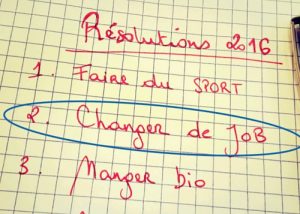 Résolutions 2016
1. Faire du SPORT
2. Changer de JOB
3. Manger bio